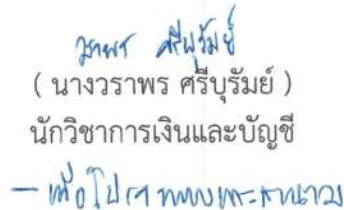 วราพร ศรีบุรัมย์
( นางวราพร ศรีบุรัมย์ )
นักวิชาการเงินและบัญชี
- เพื่อโปรดทราบ